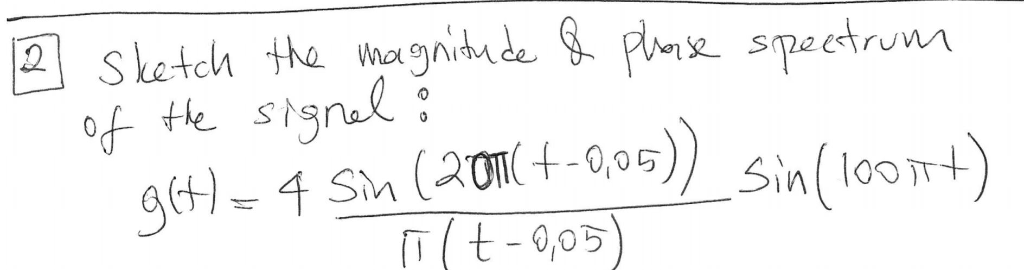 2 Sketch the magnitude & phase spectrum
of the signal :
g(t) = 4 sin (20π(t-0,05)) / π(t-0,05) sin(100πt)